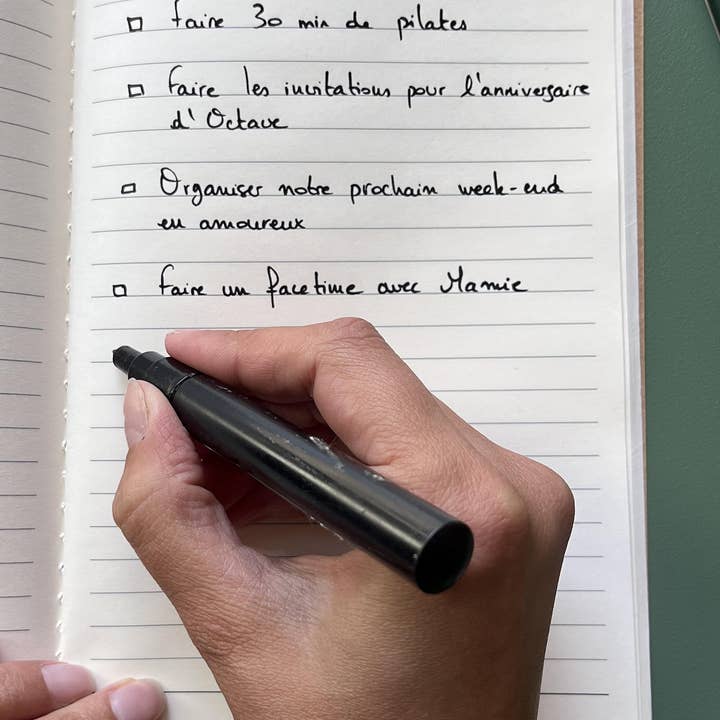 faire 30 min de pilates
faire les invitations pour l'anniversaire
d'Octave
Organiser notre prochain week-end
en amoureux
faire un facetime avec Mamie